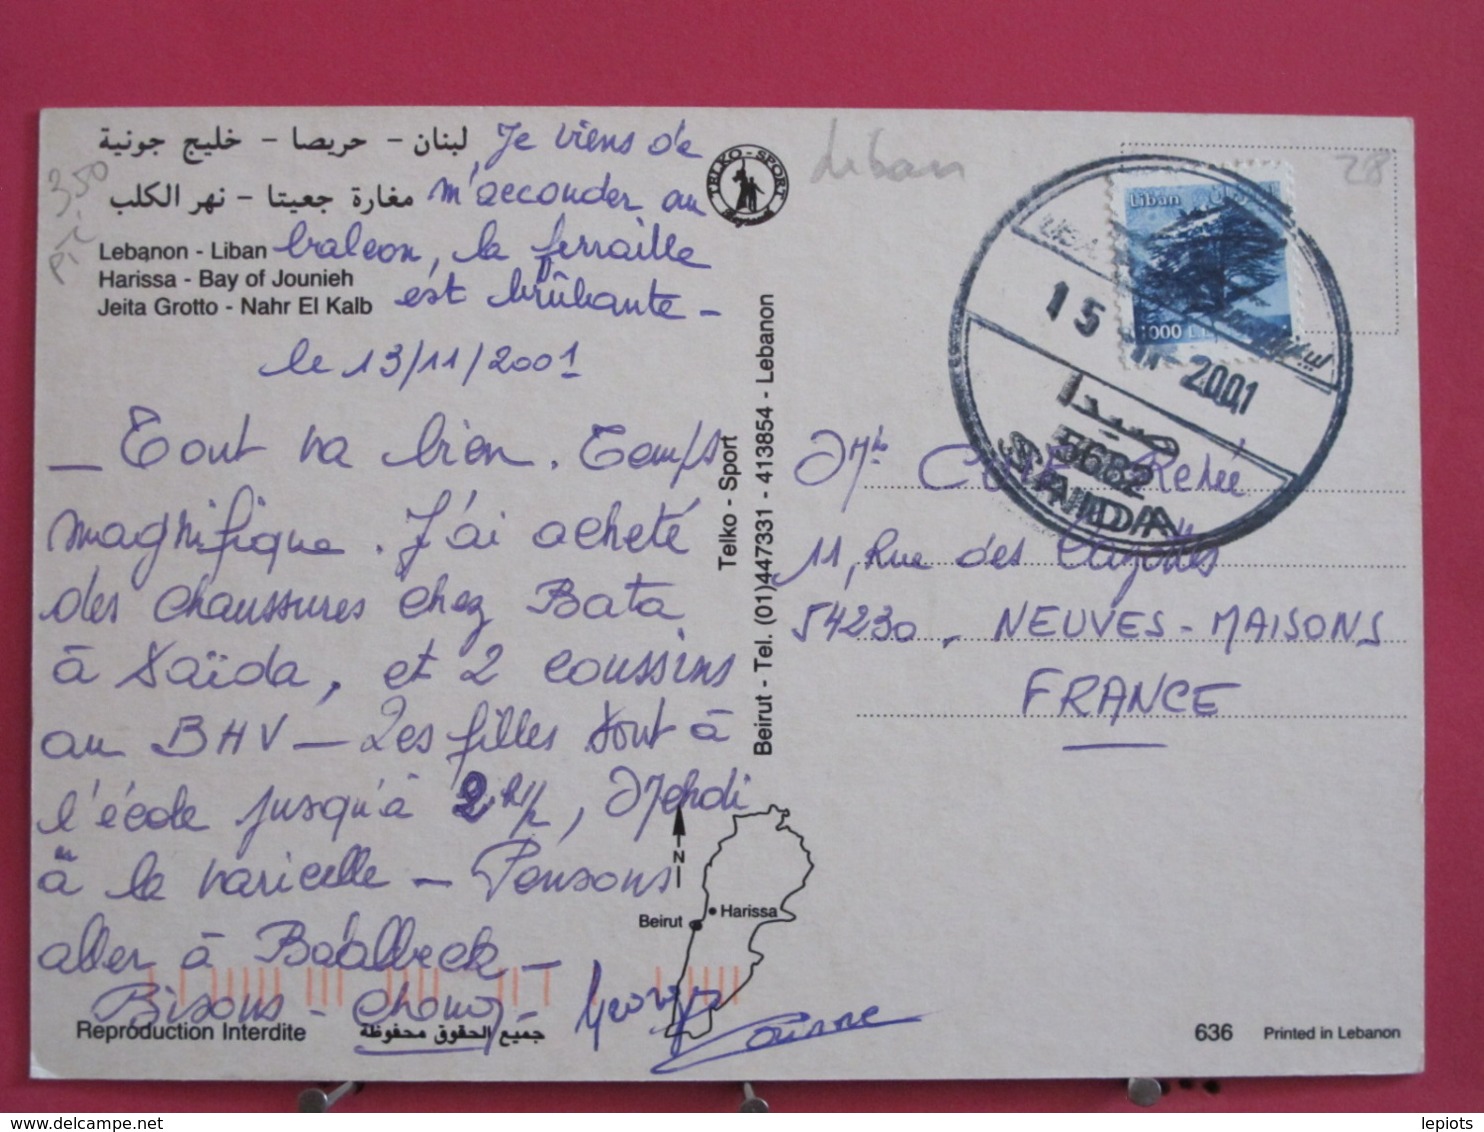 لبنان - حريصا - خليج جونية
مغارة جعيتا - نهر الكلب
Lebanon - Liban
Harissa - Bay of Jounieh
Jeita Grotto - Nahr El Kalb
3,50
Je viens de
m'accouder au
balcon, la ferraille
est brûlante -
le 13/11/2001
- Tout va bien. Temps
magnifique. J'ai acheté
des chaussures chez Bata
à Saïda, et 2 coussins
au BHV - Les filles sont à
l'école jusqu'à 2h1/2, Mehdi
à la varicelle - Pensons
aller à Baalbeck -
Bisous - Chouq -
Georges
Corinne
Reproduction Interdite
جميع الحقوق محفوظة
TELKO - SPORT
Beirut - Tel. (01)447331 - 413854 - Lebanon
Telko - Sport
N
Beirut
Harissa
Liban
28
Liban
1000 L
لبنان
15 2001
صيدا
5682
SAIDA
René
11, Rue des
54230, NEUVES-MAISONS
FRANCE
636
Printed in Lebanon
lepiots